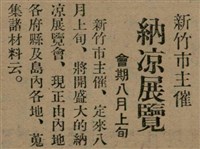 新竹市主催
納凉展覽
會期八月上旬
新竹市主催、定來八
月上旬、將開盛大的納
凉展覽會、現正由內地
各府縣及島內各地、蒐
集諸材料云。